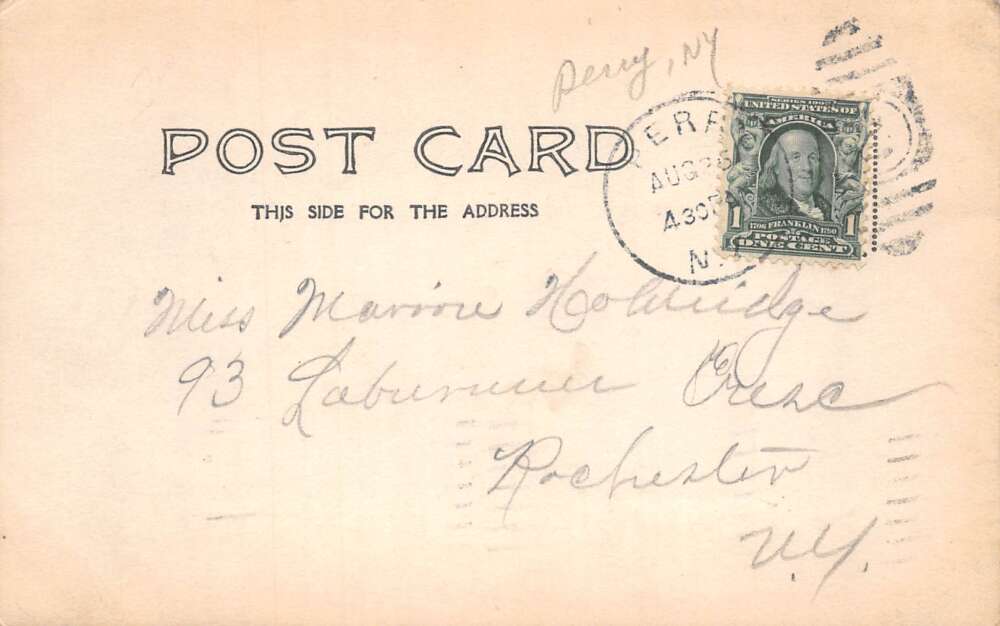 Perry, NY
POST CARD
THIS SIDE FOR THE ADDRESS
PERRY
AUG 25
430P
N.Y.
SERIES 1902
UNITED STATES OF
AMERICA
1706 FRANKLIN 1790
1 POSTAGE 1
ONE CENT
Miss Marion Holdridge
93 Laburnum Cresc
Rochester
N.Y.